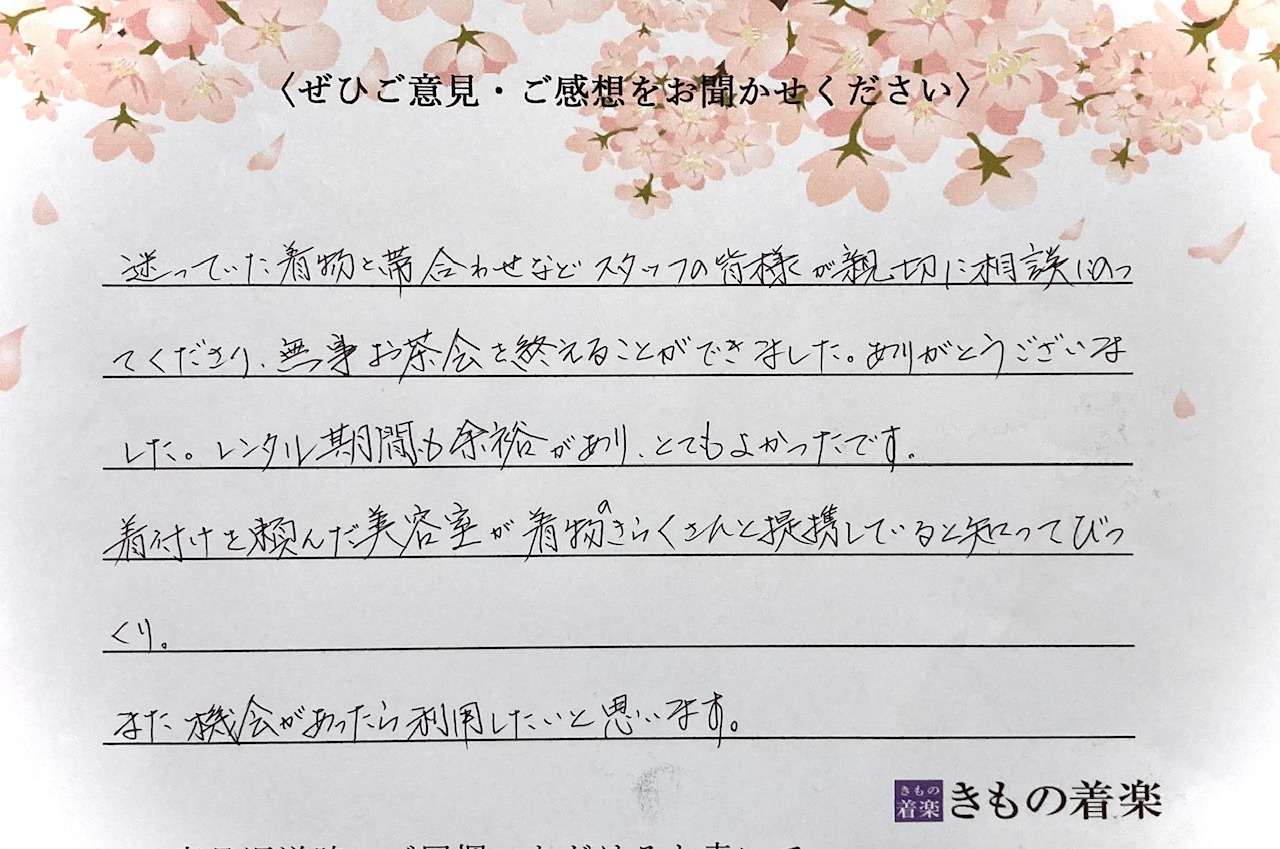 〈ぜひご意見・ご感想をお聞かせください〉
迷っていた着物と帯合わせなどスタッフの皆様が親切に相談にのっ
てくださり、無事お茶会を終えることができました。ありがとうございま
した。レンタル期間も余裕があり、とてもよかったです。
着付けを頼んだ美容室が着物のきらくさんと提携していると知ってびっ
くり。
また機会があったら利用したいと思います。
きもの
着楽
きもの着楽